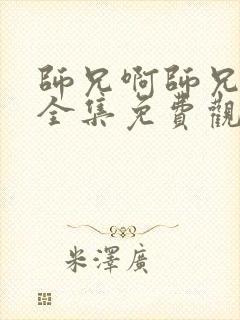 師兄啊師兄
全集免費觀
米澤廣